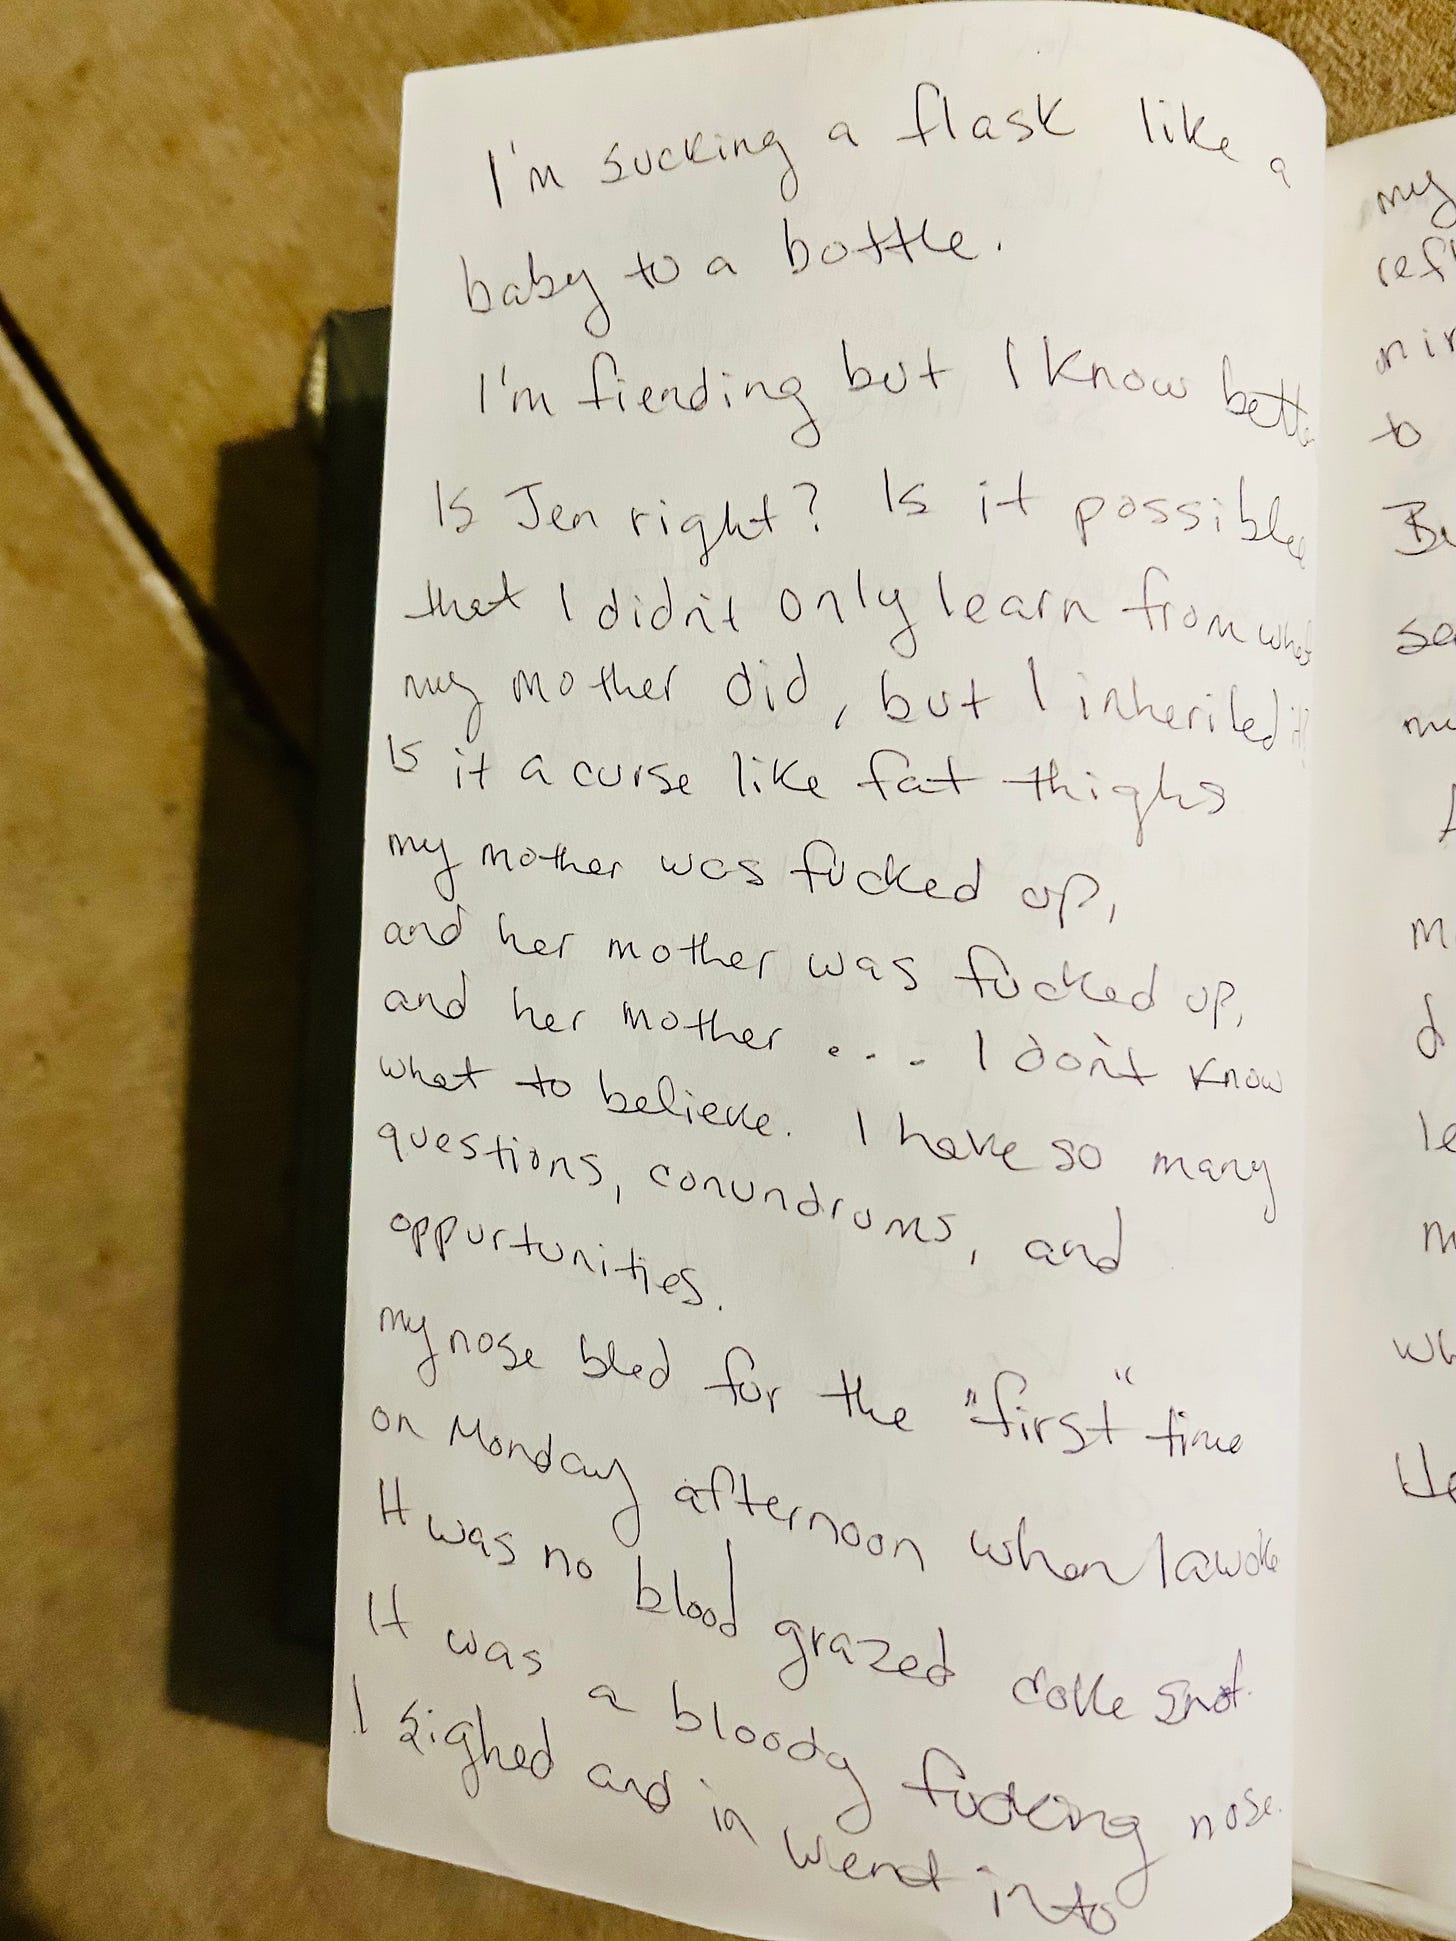 I'm sucking a flask like a
baby to a bottle.
I'm fiending but I know bette
Is Jen right? Is it possible
that I didn't only learn from what
my mother did, but I inherited it?
Is it a curse like fat thighs
my mother was fucked up,
and her mother was fucked up,
and her mother .... I don't know
what to believe. I have so many
questions, conundrums, and
oppurtunities.
my nose bled for the "first" time
on Monday afternoon when I awoke
It was no blood grazed coke snot.
It was a bloody fucking nose.
I sighed and in went into
my
refl
mir
to
Bu
se
m
d
le
m
wh